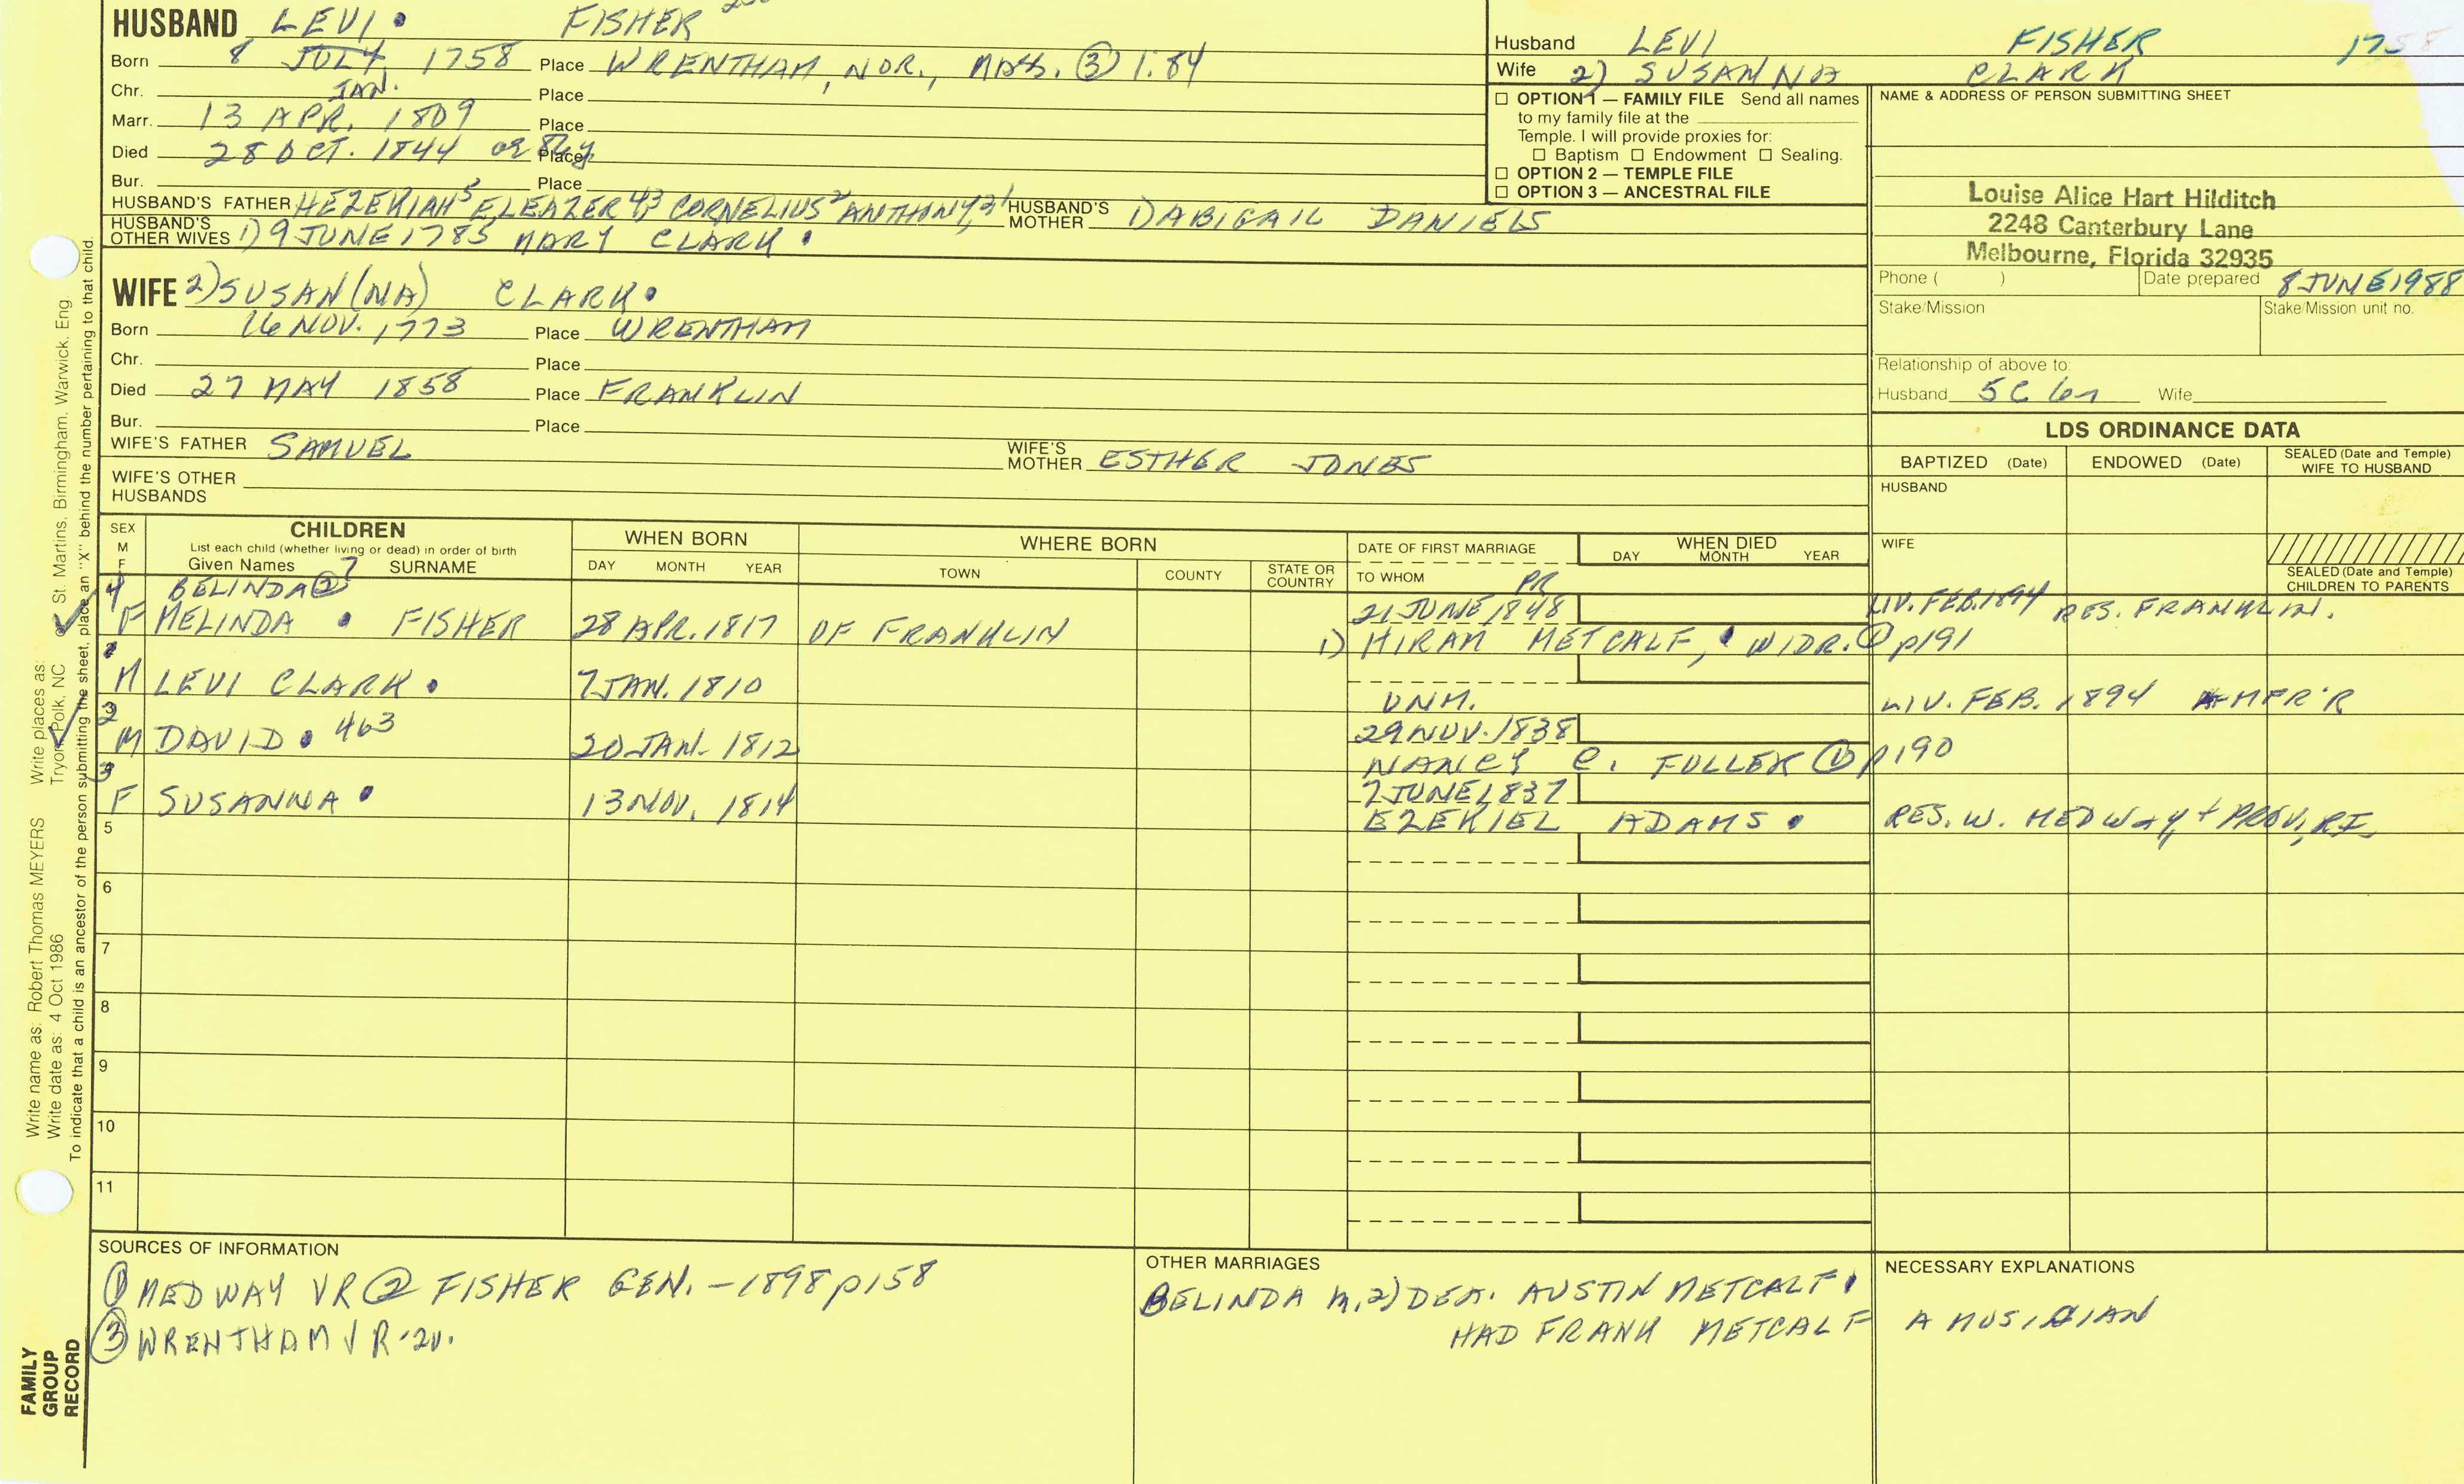 HUSBAND LEVI. FISHER
Born 8 JULY 1758 Place WRENTHAM, NOR., MASS. ③ 1:84
JAN.
Chr. Place
Marr. 13 APR. 1809 Place
Died 28 OCT. 1844 Place
Bur. Place
HUSBAND'S FATHER HEZEKIAH5 ELEAZER 4,3 CORNELIUS2 ANTHONY HUSBAND'S MOTHER 1) ABIGAIL DANIELS
HUSBAND'S OTHER WIVES 1) 9 JUNE 1785 MARY CLARK.
WIFE 2) SUSAN(NA) CLARK.
Born 16 NOV. 1773 Place WRENTHAM
Chr. Place
Died 27 MAY 1858 Place FRANKLIN
Bur. Place
WIFE'S FATHER SAMUEL WIFE'S MOTHER ESTHER JONES
WIFE'S OTHER HUSBANDS
Husband LEVI FISHER 1758
Wife 2) SUSANNA CLARK
☐ OPTION 1 — FAMILY FILE Send all names
to my family file at the
Temple. I will provide proxies for:
☐ Baptism ☐ Endowment ☐ Sealing.
☐ OPTION 2 — TEMPLE FILE
☐ OPTION 3 — ANCESTRAL FILE
NAME & ADDRESS OF PERSON SUBMITTING SHEET
Louise Alice Hart Hilditch
2248 Canterbury Lane
Melbourne, Florida 32935
Phone ( ) Date prepared 8 JUNE 1988
Stake/Mission Stake/Mission unit no.
Relationship of above to:
Husband 5C 6m Wife
LDS ORDINANCE DATA
BAPTIZED (Date) ENDOWED (Date) SEALED (Date and Temple) WIFE TO HUSBAND
HUSBAND
WIFE
SEALED (Date and Temple) CHILDREN TO PARENTS
SEX M F CHILDREN
List each child (whether living or dead) in order of birth
Given Names SURNAME
WHEN BORN DAY MONTH YEAR
WHERE BORN TOWN COUNTY STATE OR COUNTRY
DATE OF FIRST MARRIAGE TO WHOM
WHEN DIED DAY MONTH YEAR
4 BELINDA ② ? PR
F MELINDA . FISHER 28 APR. 1817 OF FRANKLIN 21 JUNE 1848 LIV. FEB. 1894 RES. FRANKLIN.
1) HIRAM METCALF, WIDR. ① p191
M LEVI CLARK . 7 JAN. 1810 UNM. LIV. FEB. 1894 MFR'R
3 2
M DAVID . 463 20 JAN. 1812 29 NOV. 1838
NANCY C. FULLER ① p190
3
F SUSANNA . 13 NOV. 1814 7 JUNE 1837
EZEKIEL ADAMS . RES. W. MEDWAY + PROV., RI
5
6
7
8
9
10
11
SOURCES OF INFORMATION
① MEDWAY VR ② FISHER GEN. - 1898 p158
③ WRENTHAM VR - 2V.
OTHER MARRIAGES
BELINDA M. 2) DEA. AUSTIN METCALF.
HAD FRANK METCALF A MUSICIAN
NECESSARY EXPLANATIONS
Write name as: Robert Thomas MEYERS Write places as: Tryon, Polk, NC or St. Martins, Birmingham, Warwick, Eng
Write date as: 4 Oct 1986
To indicate that a child is an ancestor of the person submitting the sheet, place an "X" behind the number pertaining to that child.
FAMILY GROUP RECORD